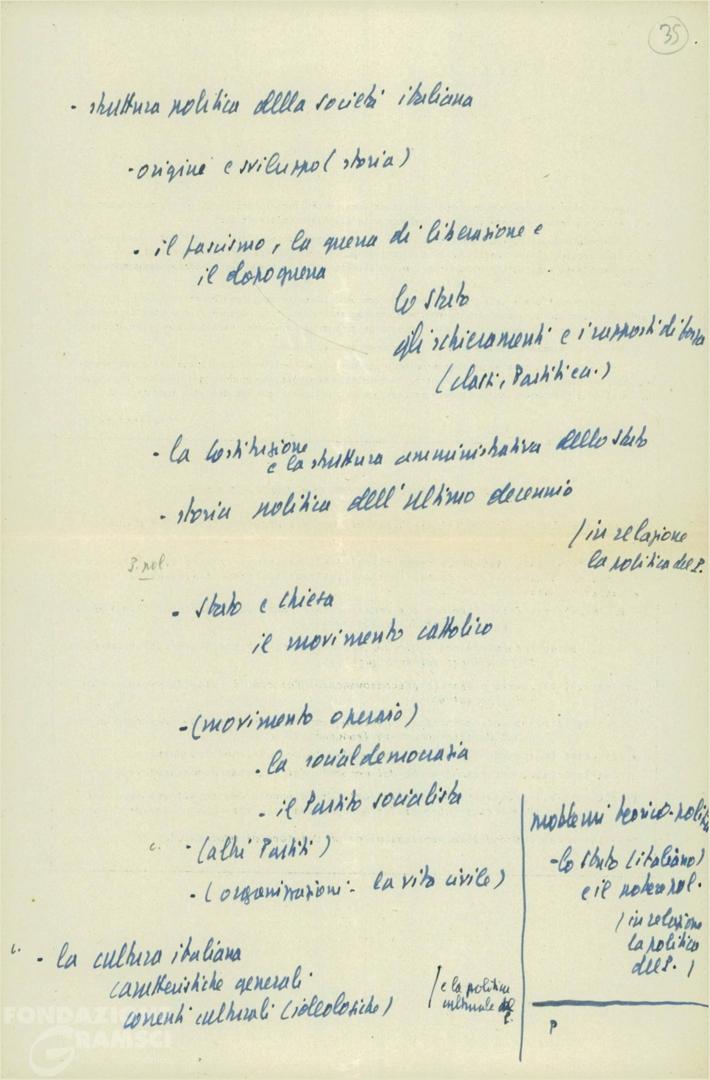 35
- struttura politica della società italiana
- origine e sviluppo (storia)
- il fascismo, la guerra di liberazione e
il dopoguerra
lo Stato
gli schieramenti e i rapporti di forza
(classi, Partiti ecc.)
- la Costituzione
e la struttura amministrativa dello Stato
- storia politica dell'ultimo decennio
(in relazione
la politica del P.
3. pol.
- Stato e Chiesa
il movimento cattolico
- (movimento operaio)
- la socialdemocrazia
- il Partito socialista
c. - (altri Partiti)
- (organizzazioni - la vita civile)
problemi teorico-politici
- lo Stato (italiano)
e il potere pol.
(in relazione
la politica
del P.)
P
- la cultura italiana
caratteristiche generali
correnti culturali (ideologiche)
(e la politica
culturale del
P.
FONDAZIONE
GRAMSCI